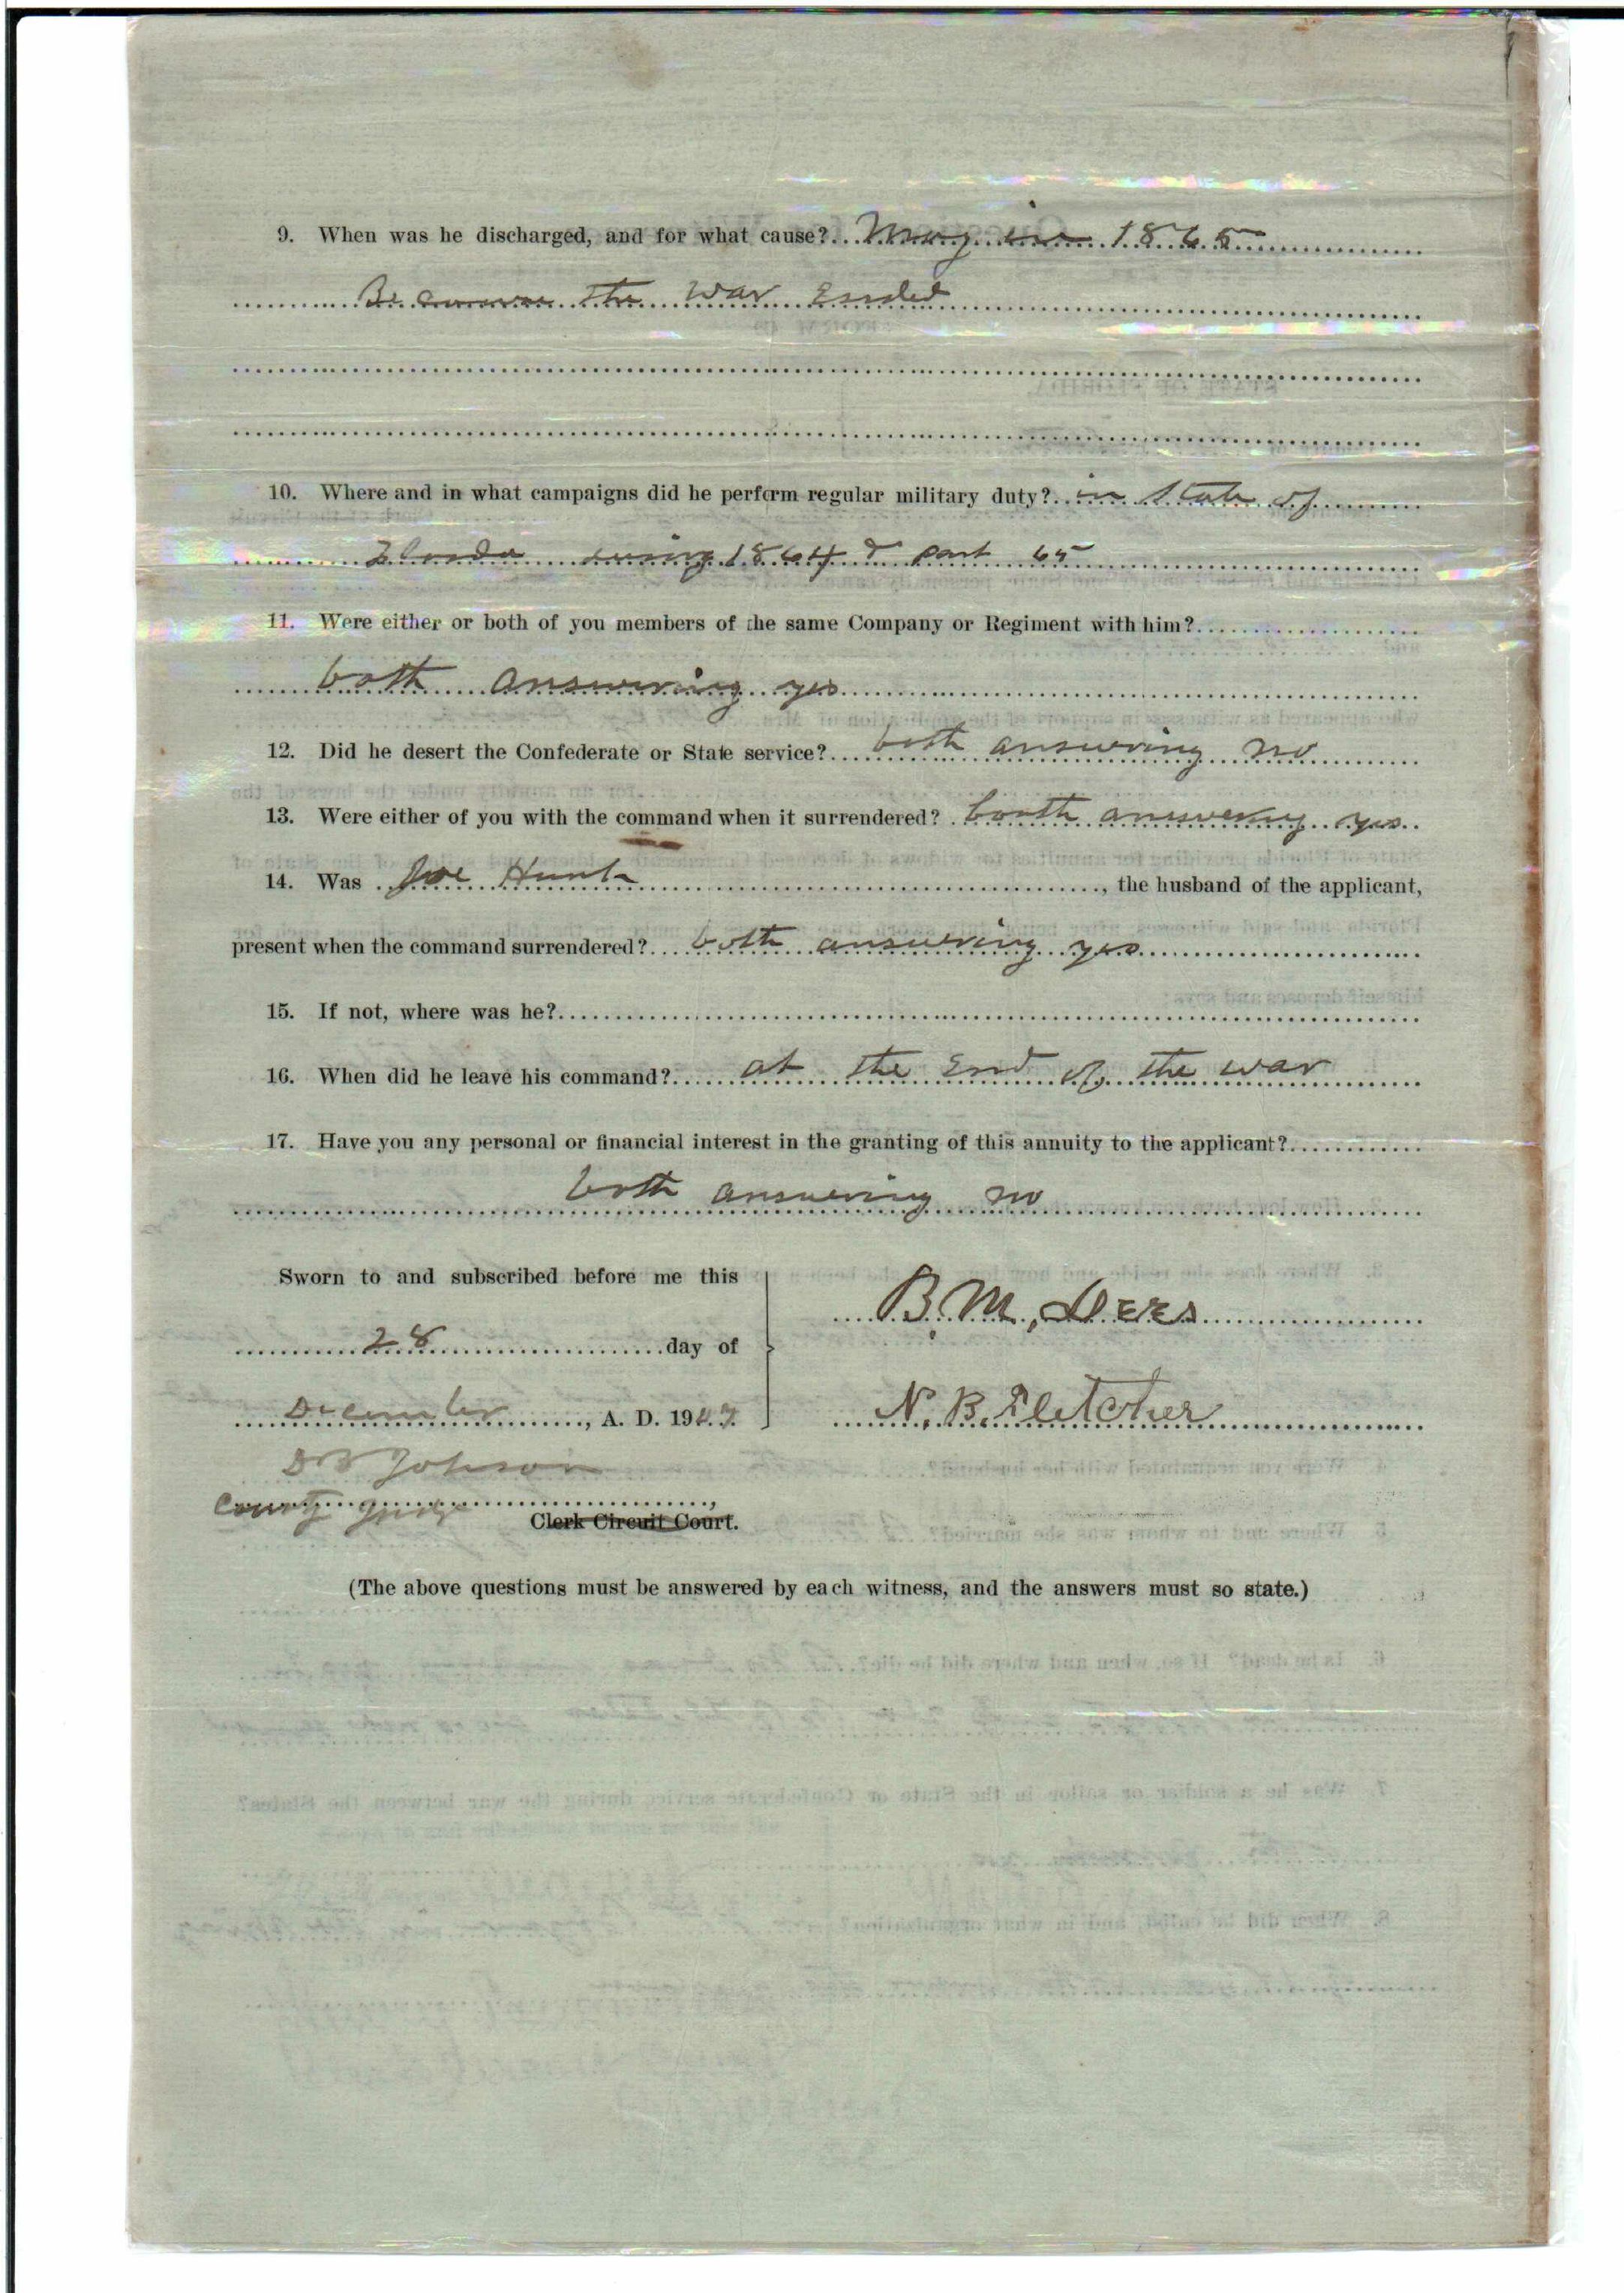 9. When was he discharged, and for what cause? May in 1865
Because the war Ended
10. Where and in what campaigns did he perform regular military duty? in State of
Florida during 1864 & part 65
11. Were either or both of you members of the same Company or Regiment with him?
both answering yes
12. Did he desert the Confederate or State service? both answering no
13. Were either of you with the command when it surrendered? booth answering yes
14. Was Joe Hunt, the husband of the applicant,
present when the command surrendered? both answering yes
15. If not, where was he?
16. When did he leave his command? at the End of the war
17. Have you any personal or financial interest in the granting of this annuity to the applicant?
both answering no
Sworn to and subscribed before me this
B. M.
28 day of
December, A. D. 190
N. B. Fletcher
Johnson
County Judge Clerk Circuit Court.
(The above questions must be answered by each witness, and the answers must so state.)